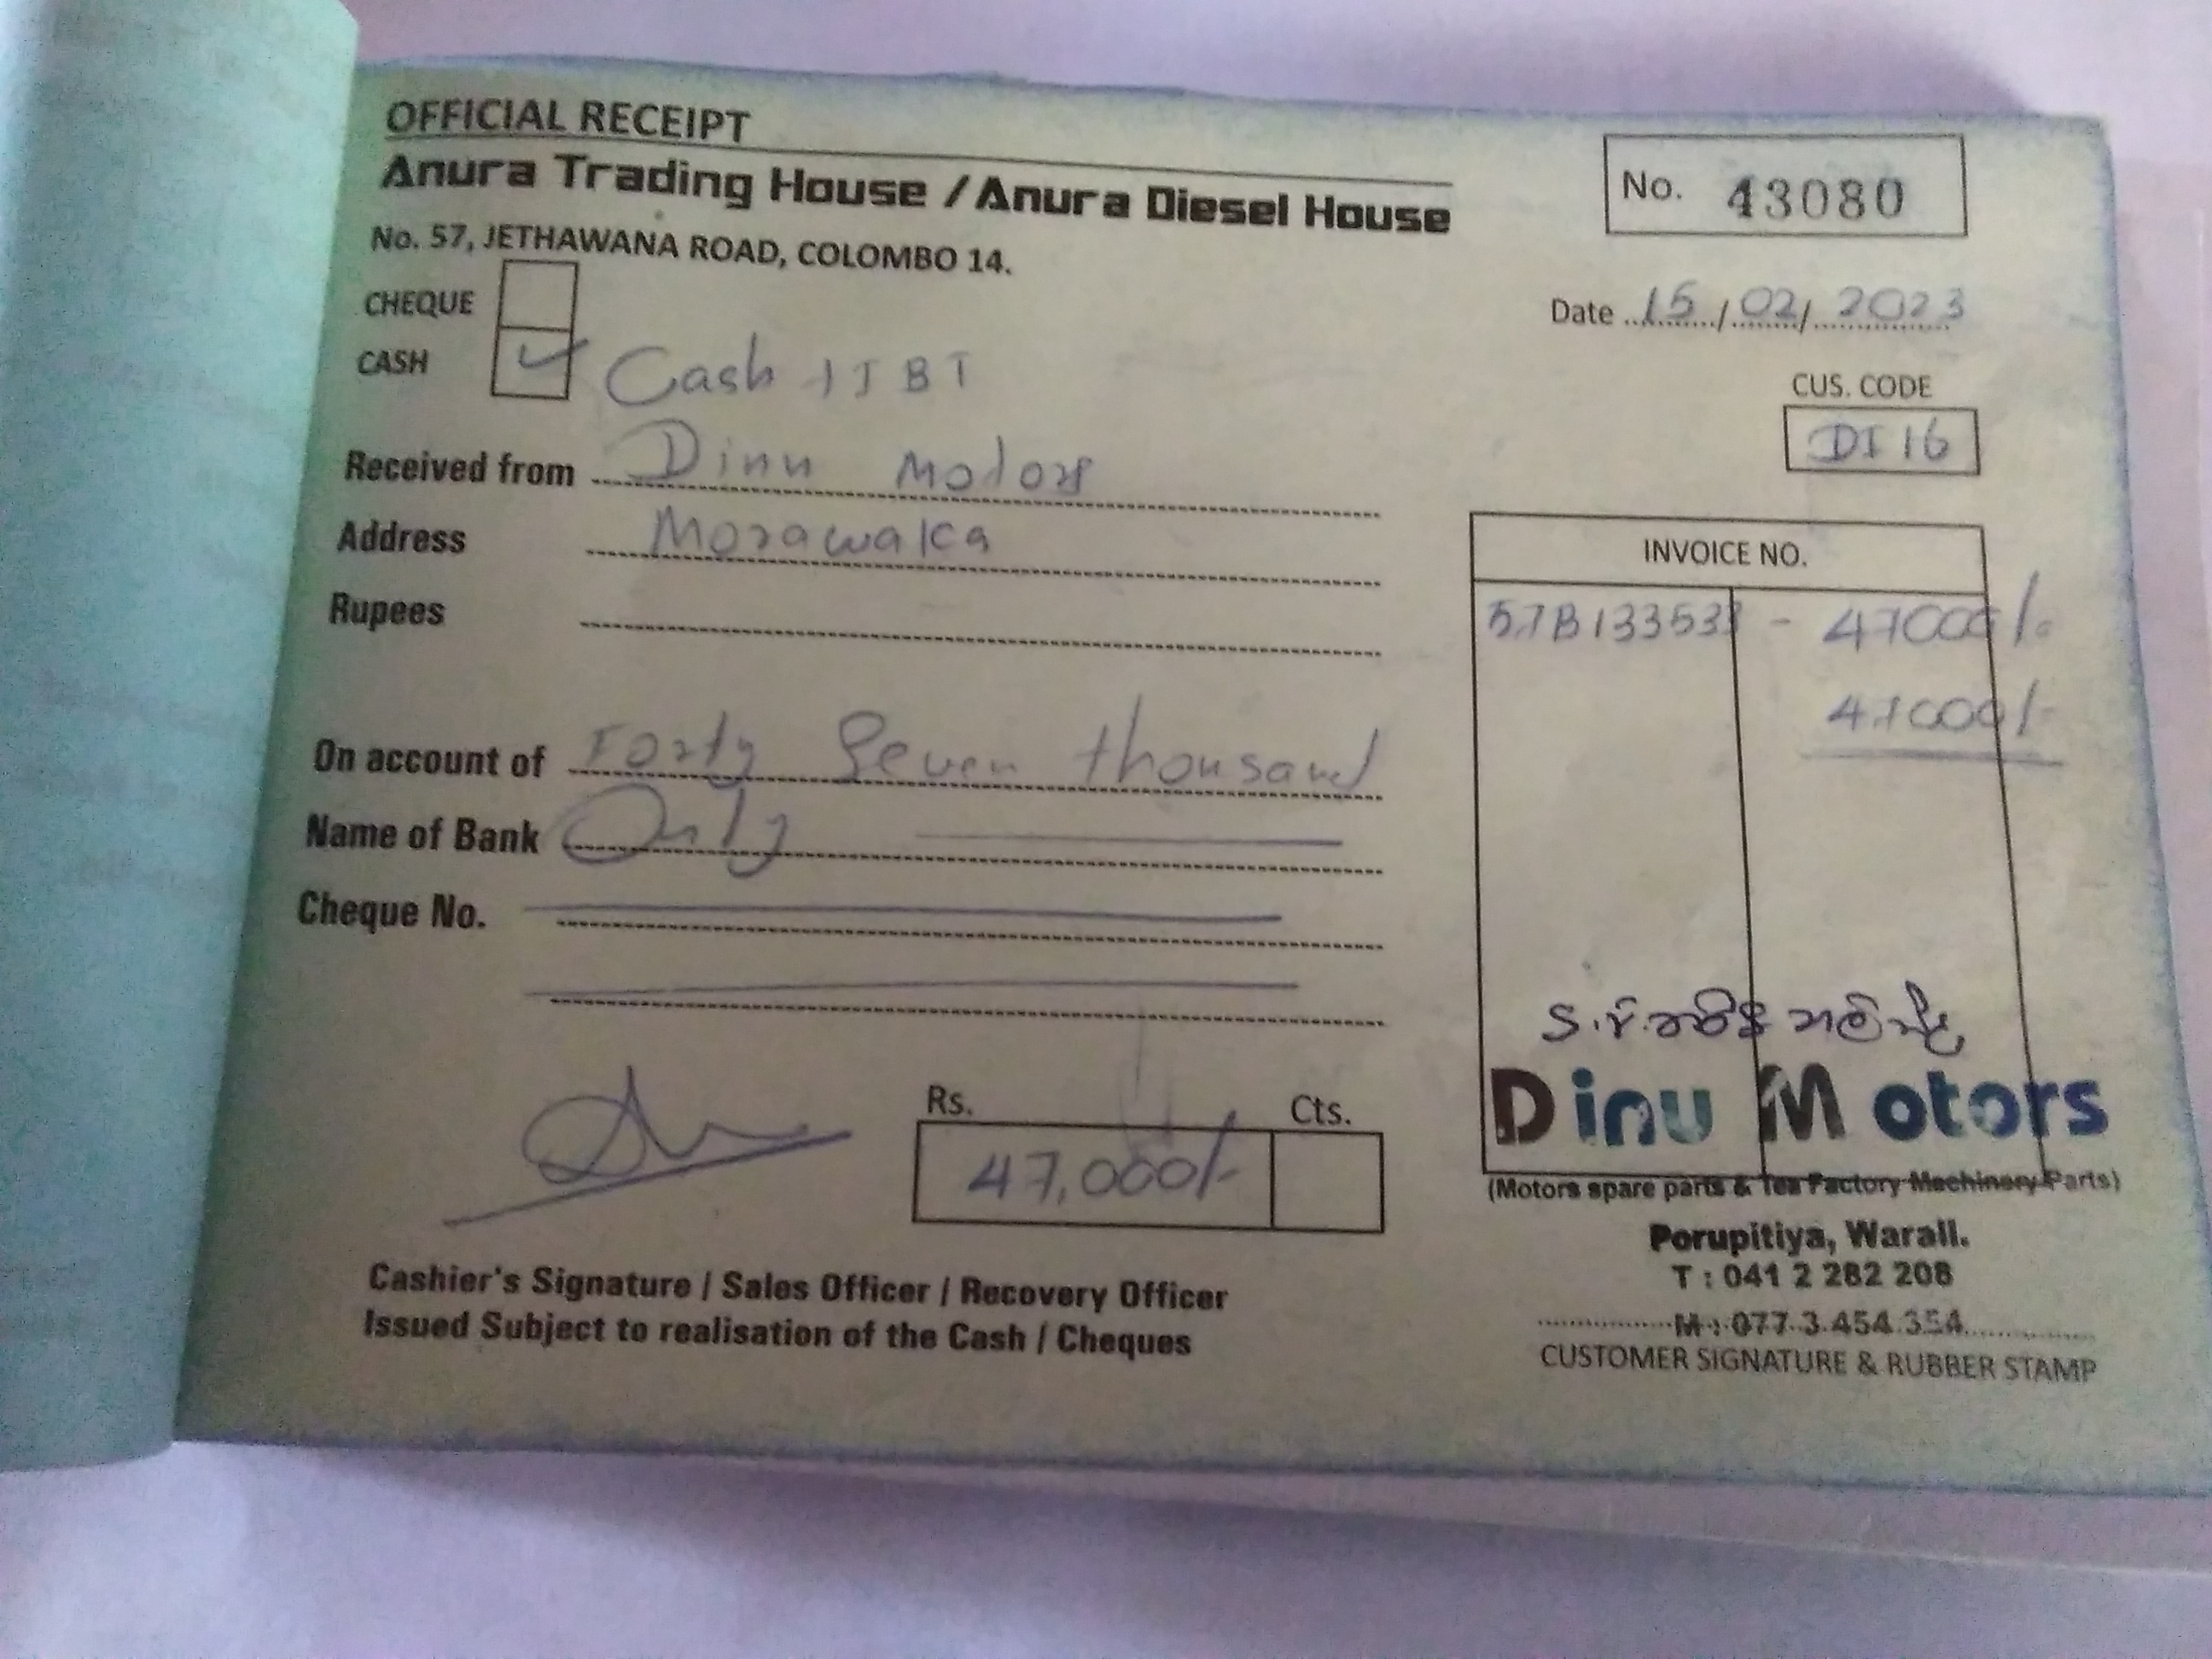 OFFICIAL RECEIPT
Anura Trading House / Anura Diesel House
No. 57, JETHAWANA ROAD, COLOMBO 14.
No. 43080
Date 15/02/2023
CHEQUE
CASH ✓ Cash
CUS. CODE
DI 16
Received from Dinu Motors
Address Morawaka
Rupees
On account of Forty Seven thousand
Name of Bank Only
Cheque No.
INVOICE NO.
- 47000/-
47000/-
Rs. Cts.
47,000/-
Cashier's Signature / Sales Officer / Recovery Officer
Issued Subject to realisation of the Cash / Cheques
Dinu Motors
(Motors spare parts & Tea Factory Machinery Parts)
Porupitiya, Warall.
T : 041 2 282 208
M : 077 3 454 354
CUSTOMER SIGNATURE & RUBBER STAMP